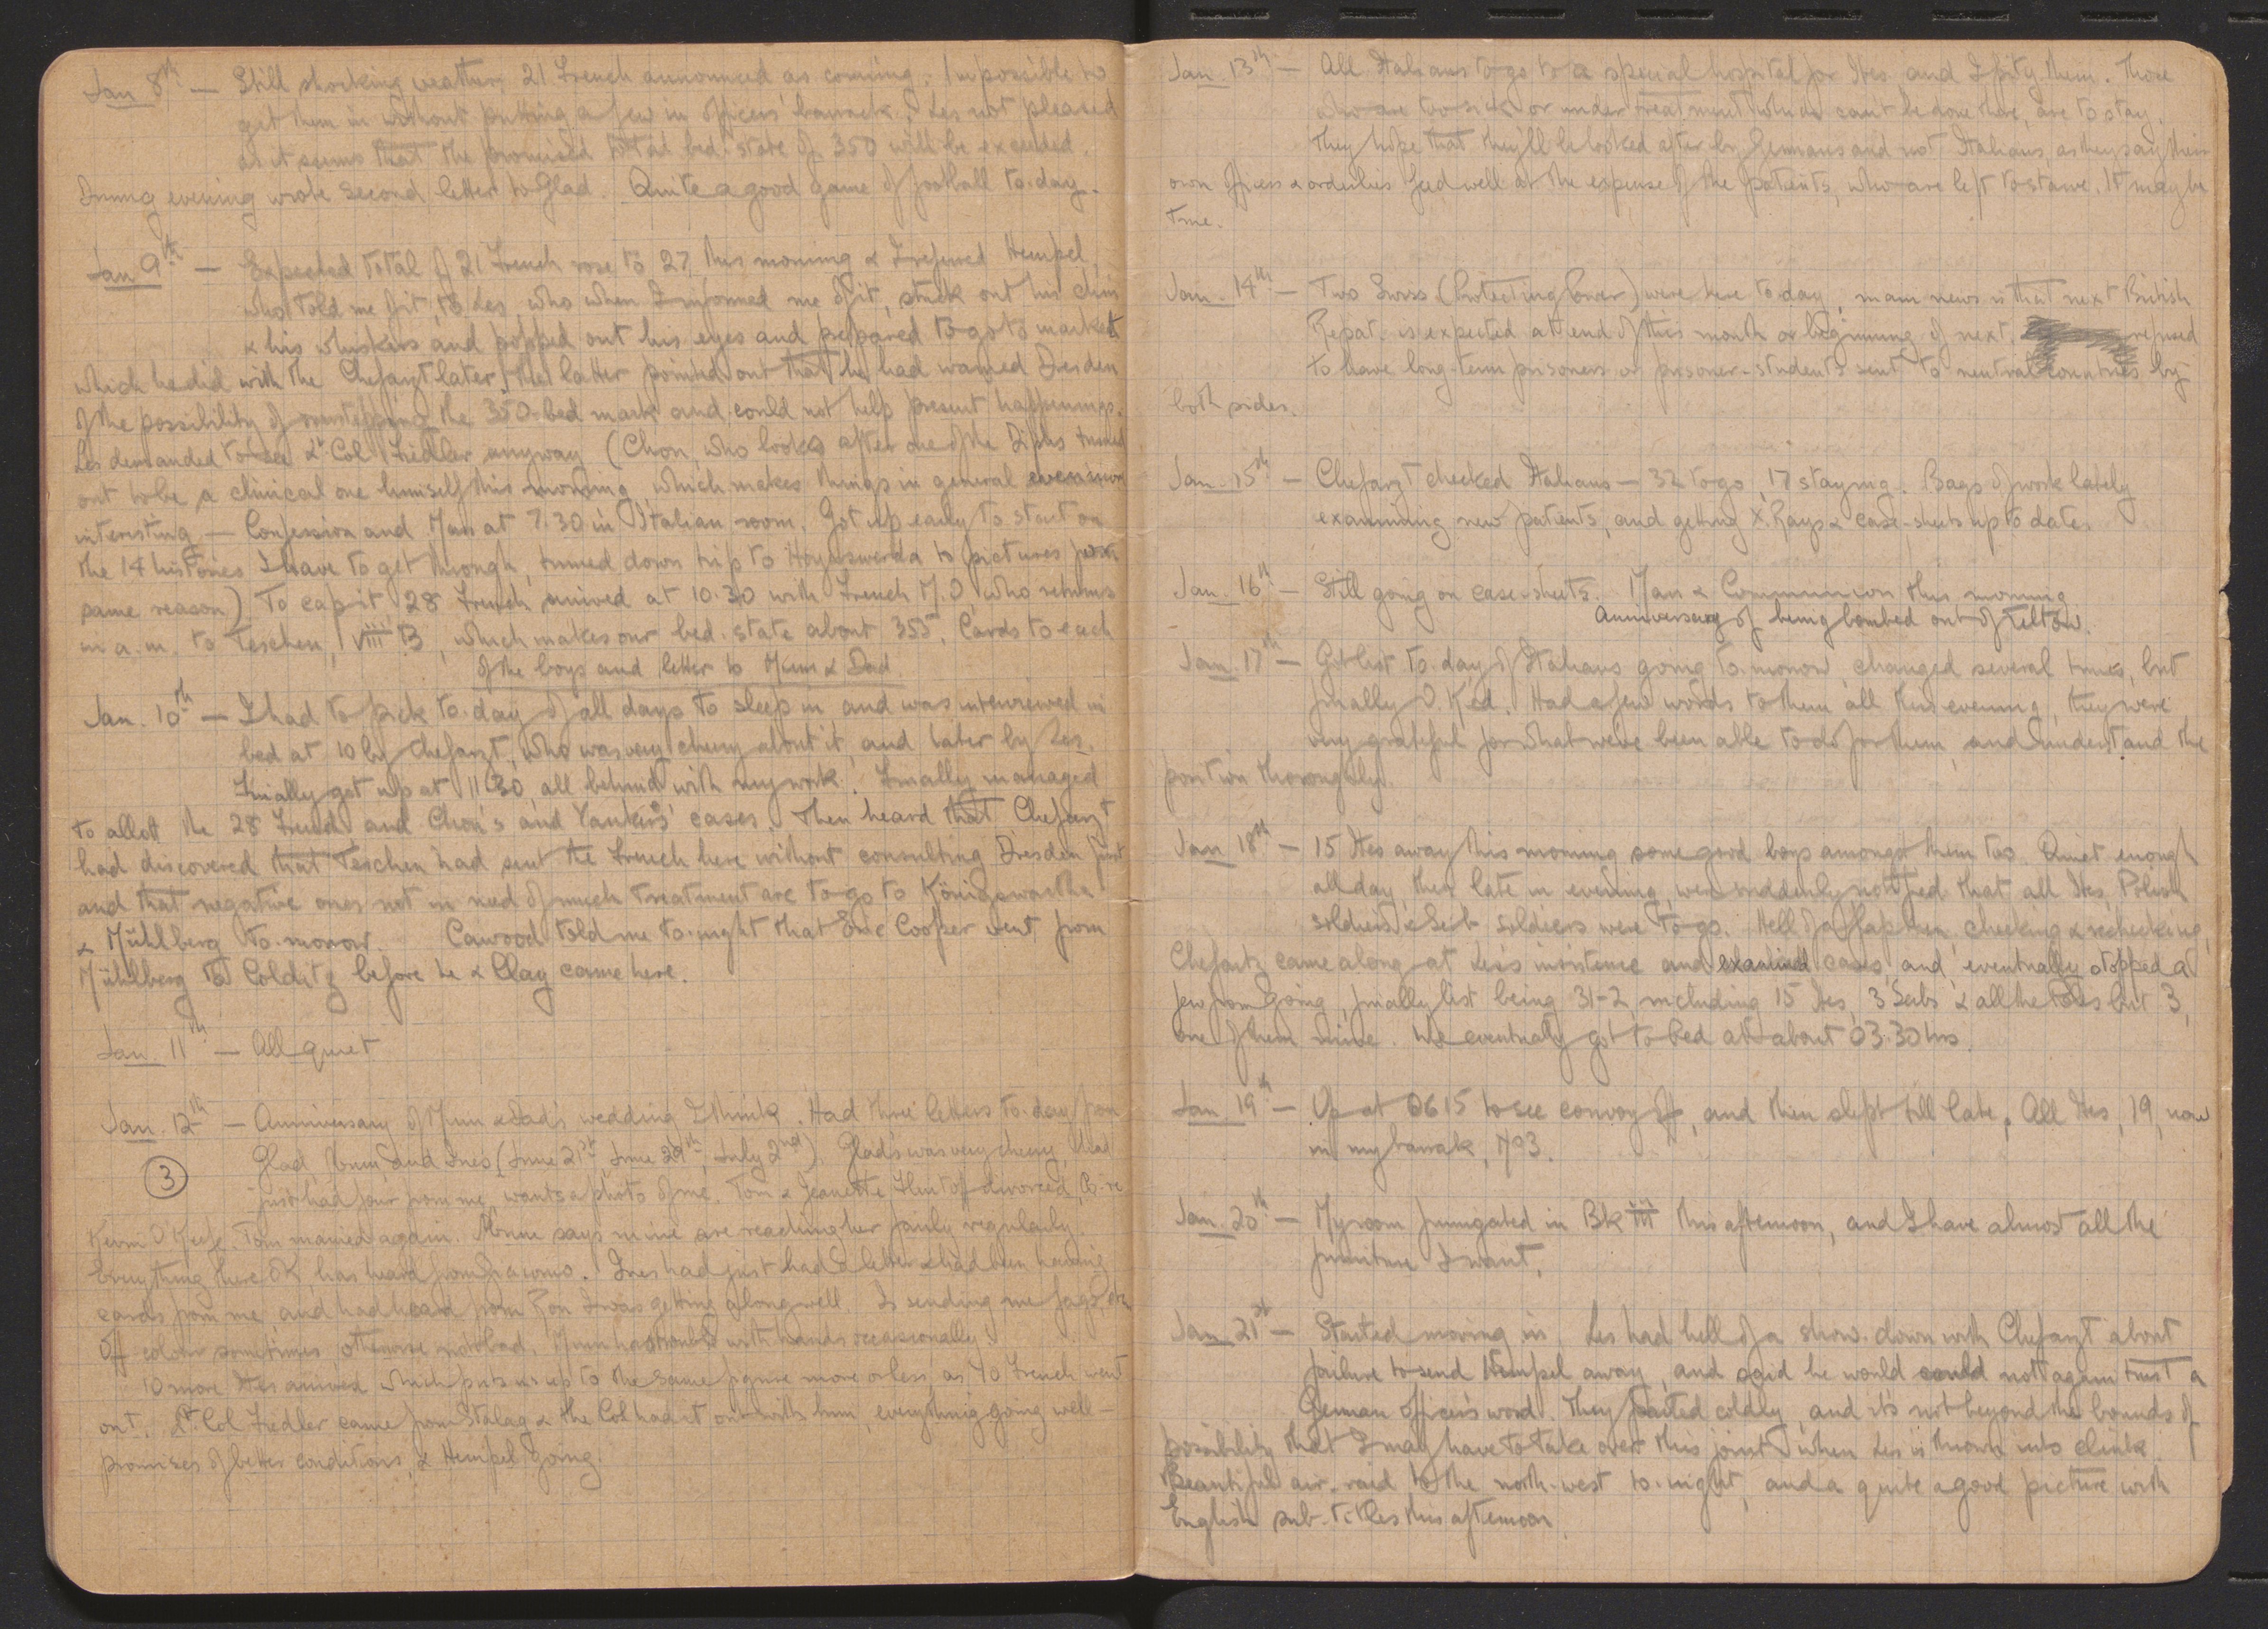 Jan 8th — Still shocking weather, 21 French announced as coming. Impossible to
get them in without putting a few in officers' barrack, & Les not pleased
as it seems that the promised total bed-state of 350 will be exceeded.
During evening wrote second letter to Glad. Quite a good game of football to-day.
Jan 9th — Expected total of 21 French rose to 27 this morning & I referred Hempel,
who told me of it, to Les, who when I informed me of it, stuck out his chin
& his whiskers and popped out his eyes and prepared to go to market
which he did with the Chefarzt later, the latter pointed out that he had warned Dresden
of the possibility of overstepping the 350-bed mark and could not help present happenings.
Les demanded to see Lt Col Fiedler anyway (Chon, who looks after one of the Diphs turned
out to be a clinical one himself this morning, which makes things in general even more
interesting — Confession and Mass at 7.30 in Italian room. Got up early to start on
the 14 histories I have to get through, turned down trip to Hoyerswerda to pictures for
same reason) To cap it, 28 French arrived at 10.30 with French M.O, who returns
in a.m. to Teschen, VIII B, which makes our bed-state about 355. Cards to each
of the boys and letter to Mum & Dad.
Jan. 10th — I had to pick to-day of all days to sleep in, and was interviewed in
bed at 10 by Chefarzt, who was very cheery about it, and later by Les.
Finally got up at 11.30, all behind with my work. Finally managed
to allott the 28 French and Chon's and Yankis' cases. Then heard that Chefarzt
had discovered that Teschen had sent the French here without consulting Dresden first
and that negative ones not in need of much treatment are to go to Königswartha
& Mühlberg to-morrow. Cawood told me to-night that Eric Cooper went from
Mühlberg to Colditz before he & Clay came here.
Jan. 11th — All quiet
Jan. 12th — Anniversary of Mum & Dad's wedding I think. Had three letters to-day from
3
Glad, Mum and Ines (June 21st, June 29th, July 2nd). Glad's was very cheery, had
just had four from me, wants a photo of me. Tom & Jeanette divorced,
Kevin O'Keefe. Tom married again. Mum says mine are reaching her fairly regularly.
Everything there OK has heard from. Ines had just had a letter & had been having
cards from me, and had heard from Ron I was getting along well. Is sending me fags, etc
Off colour sometimes, otherwise not bad. Mum has trouble with hands occasionally.
10 more Ities arrived which puts us up to the same figure more or less, as 40 French went
out. Lt Col Fiedler came from Stalag & the Col had it out with him, everything going well —
promises of better conditions, & Hempel going.
Jan. 13th — All Italians to go to a special hospital for Ities and I pity them. Those
who are too sick or under treatment which can't be done there, are to stay.
They hope that they'll be looked after by Germans and not Italians, as they say their
own officers & orderlies feed well at the expense of the patients, who are left to starve. It may be
true.
Jan. 14th — Two Swiss (Protecting Power) were here to-day, main news is that next British
Repat. is expected at end of this month or beginning of next, refused
to have long-term prisoners or prisoner-students sent to neutral countries by
both sides.
Jan. 15th — Chefarzt checked Italians — 32 to go, 17 staying. Bags of work lately
examining new patients, and getting X.Rays & case-sheets up to date.
Jan. 16th — Still going on case-sheets. Mass & Communion this morning
Anniversary of being bombed out of Teltow.
Jan. 17th — Got list to-day of Italians going to-morrow, changed several times, but
finally O.K'ed. Had a few words to them all this evening, they were
very grateful for what we've been able to do for them, and understand the
position thoroughly.
Jan 18th — 15 Ities away this morning some good boys amongst them too. Quiet enough
all day, then late in evening, were suddenly notified that all Ities, Polish
soldiers & Serb soldiers were to go. Hell of a flap then, checking & rechecking,
Chefartz came along at Les's insistence and examined cases, and eventually stopped a
few from going, finally list being 31-2, including 15 Ities, 3 Serbs & all the Poles but 3,
one of them mine. We eventually got to bed at about 03.30 hrs.
Jan. 19th — Up at 0615 to see convoy off, and then slept till late. All Ities, 19, now
in my barrak, 793.
Jan. 20th — My room fumigated in Bk III this afternoon, and I have almost all the
furniture I want.
Jan. 21st — Started moving in. Les had hell of a show-down with Chefarzt about
failure to send Hempel away, and said he would could not again trust a
German officer's word. They parted coldly, and it's not beyond the bounds of
possibility that I may have to take over this joint when Les is thrown into clink.
Beautiful air-raid to the north-west to-night, and a quite a good picture with
English sub-titles this afternoon.